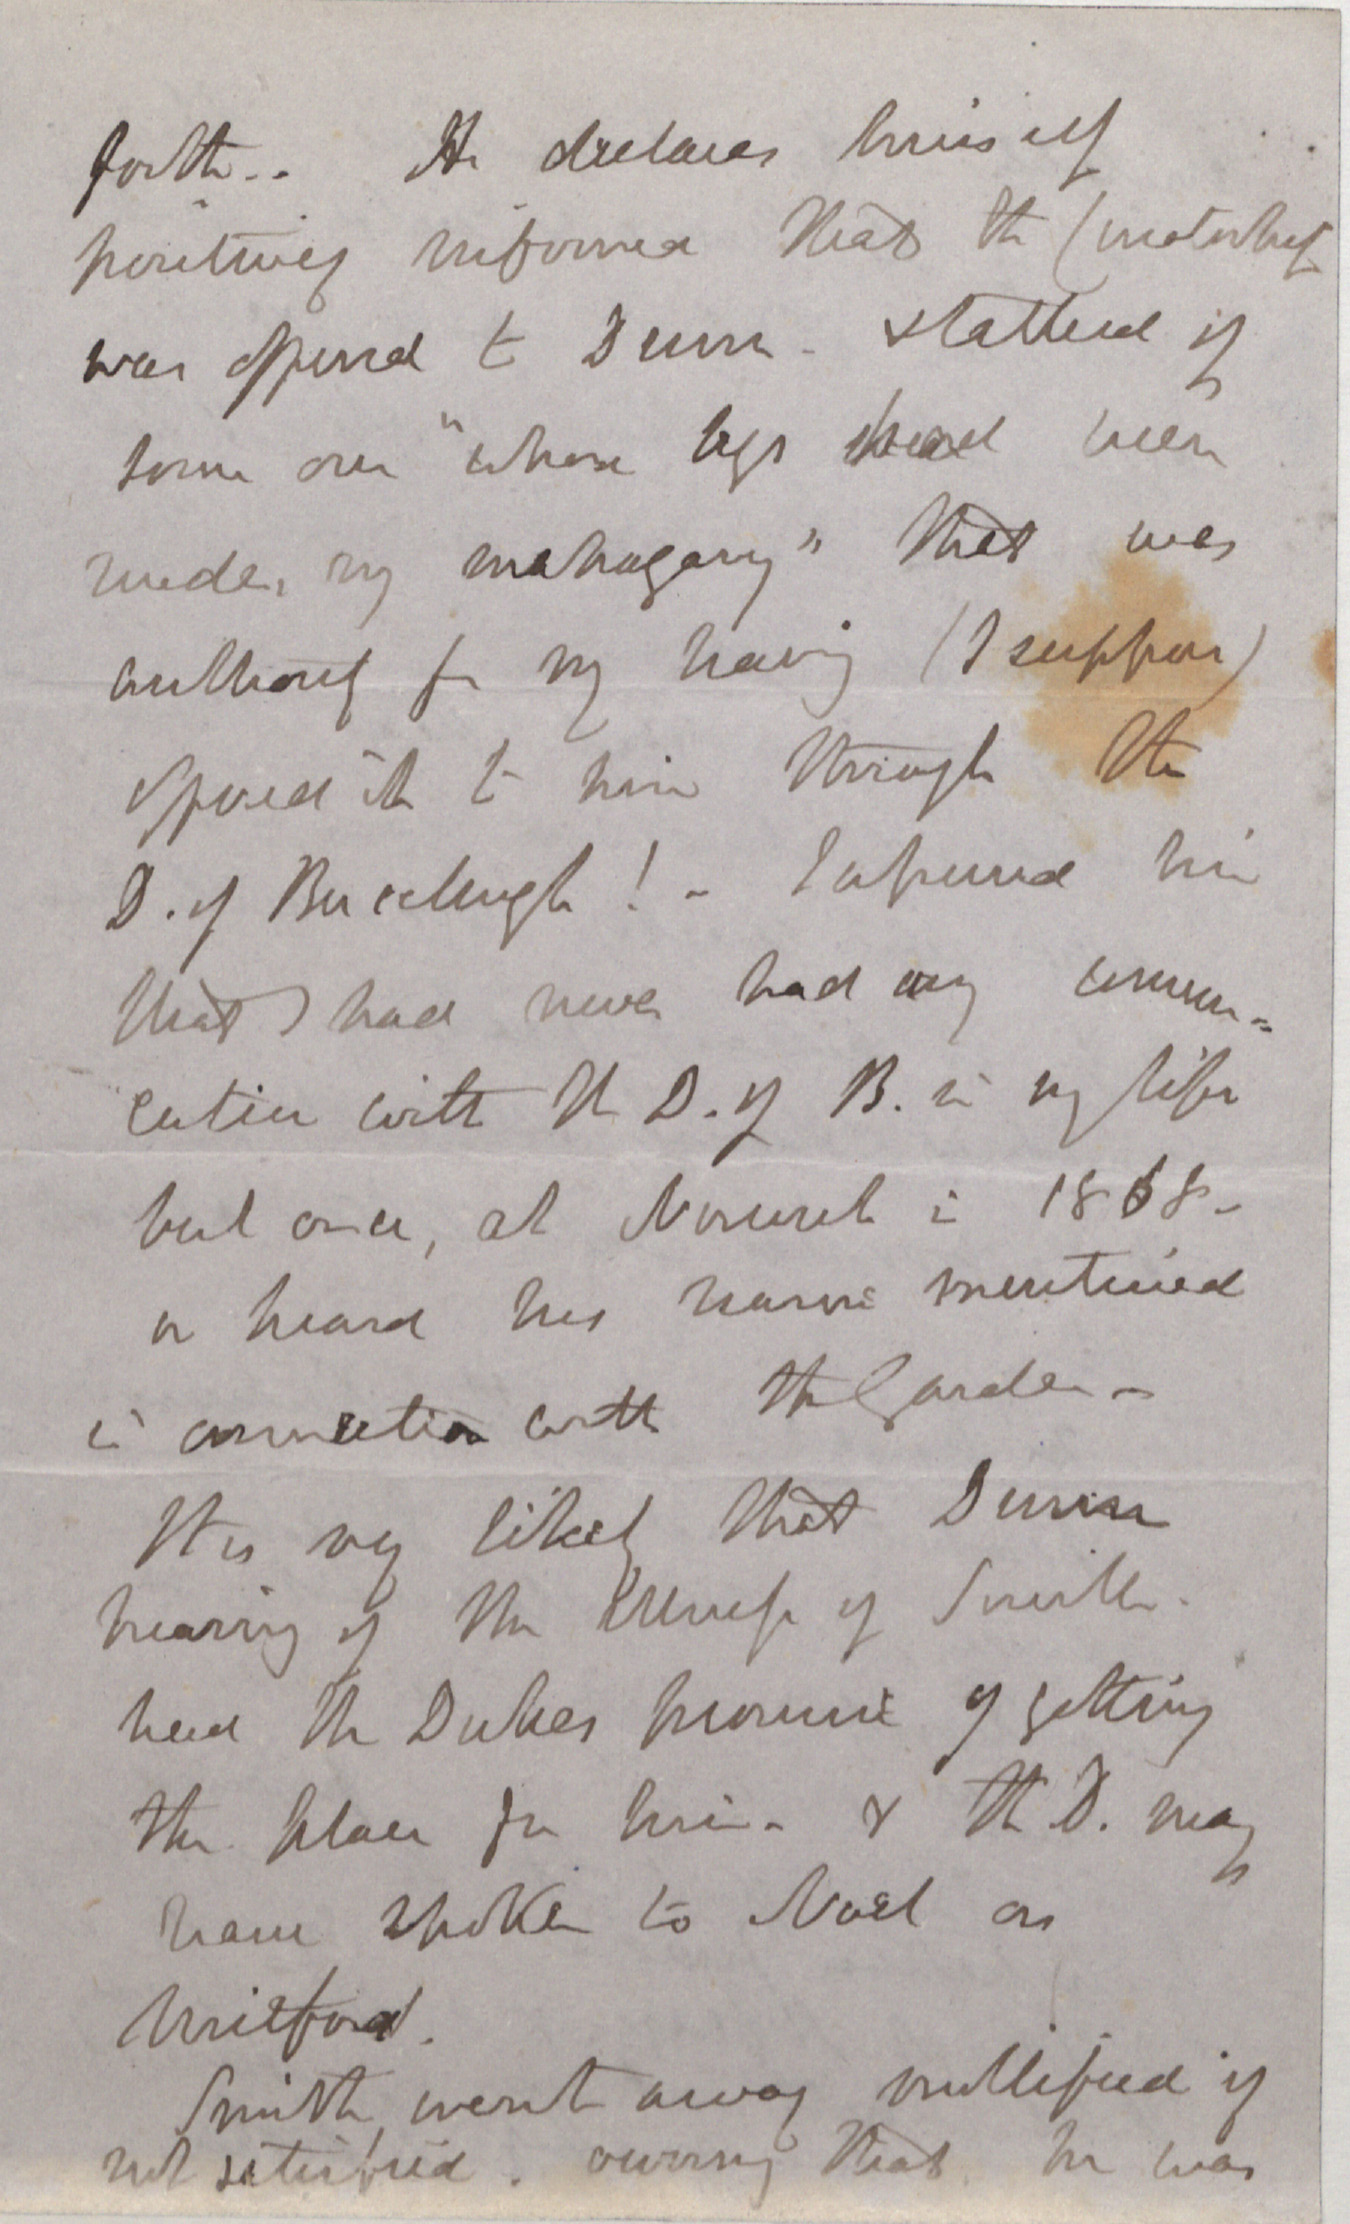 forth.. He declares himself
positively informed that the Curatorship
was offered to Dunn - & talked of
some one "whose legs had been
under my mahogany" that was
authority for my having (I suppose)
offered it to him through the
D. of Buccleugh! - I informed him
that I had never had any commun-
cation with the D. of B. in my life
but once, at Norwich in 1868 -
or heard his name mentioned
in connection with the Garden -
It is very likely that Dunn
hearing of the illness of Smith.
had the Dukes promise of getting
the place for him - & the D. may
have spoken to Noel or
Milford.
Smith went away mollified if
not satisfied. owning that he was